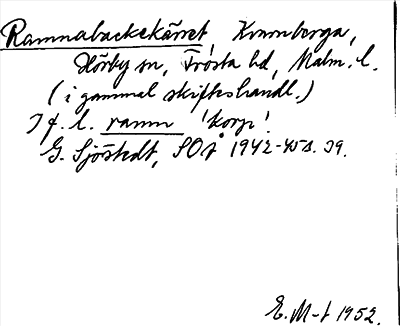 Ramnabackekärret Kramberga,
Hörby sn, Frosta hd, Malm. l.
(i gammal skifteshandl.)
I f. l. ramn 'korp'.
G. Sjöstedt, SOÅ 1942-45 s. 39.
E. M-t 1952.